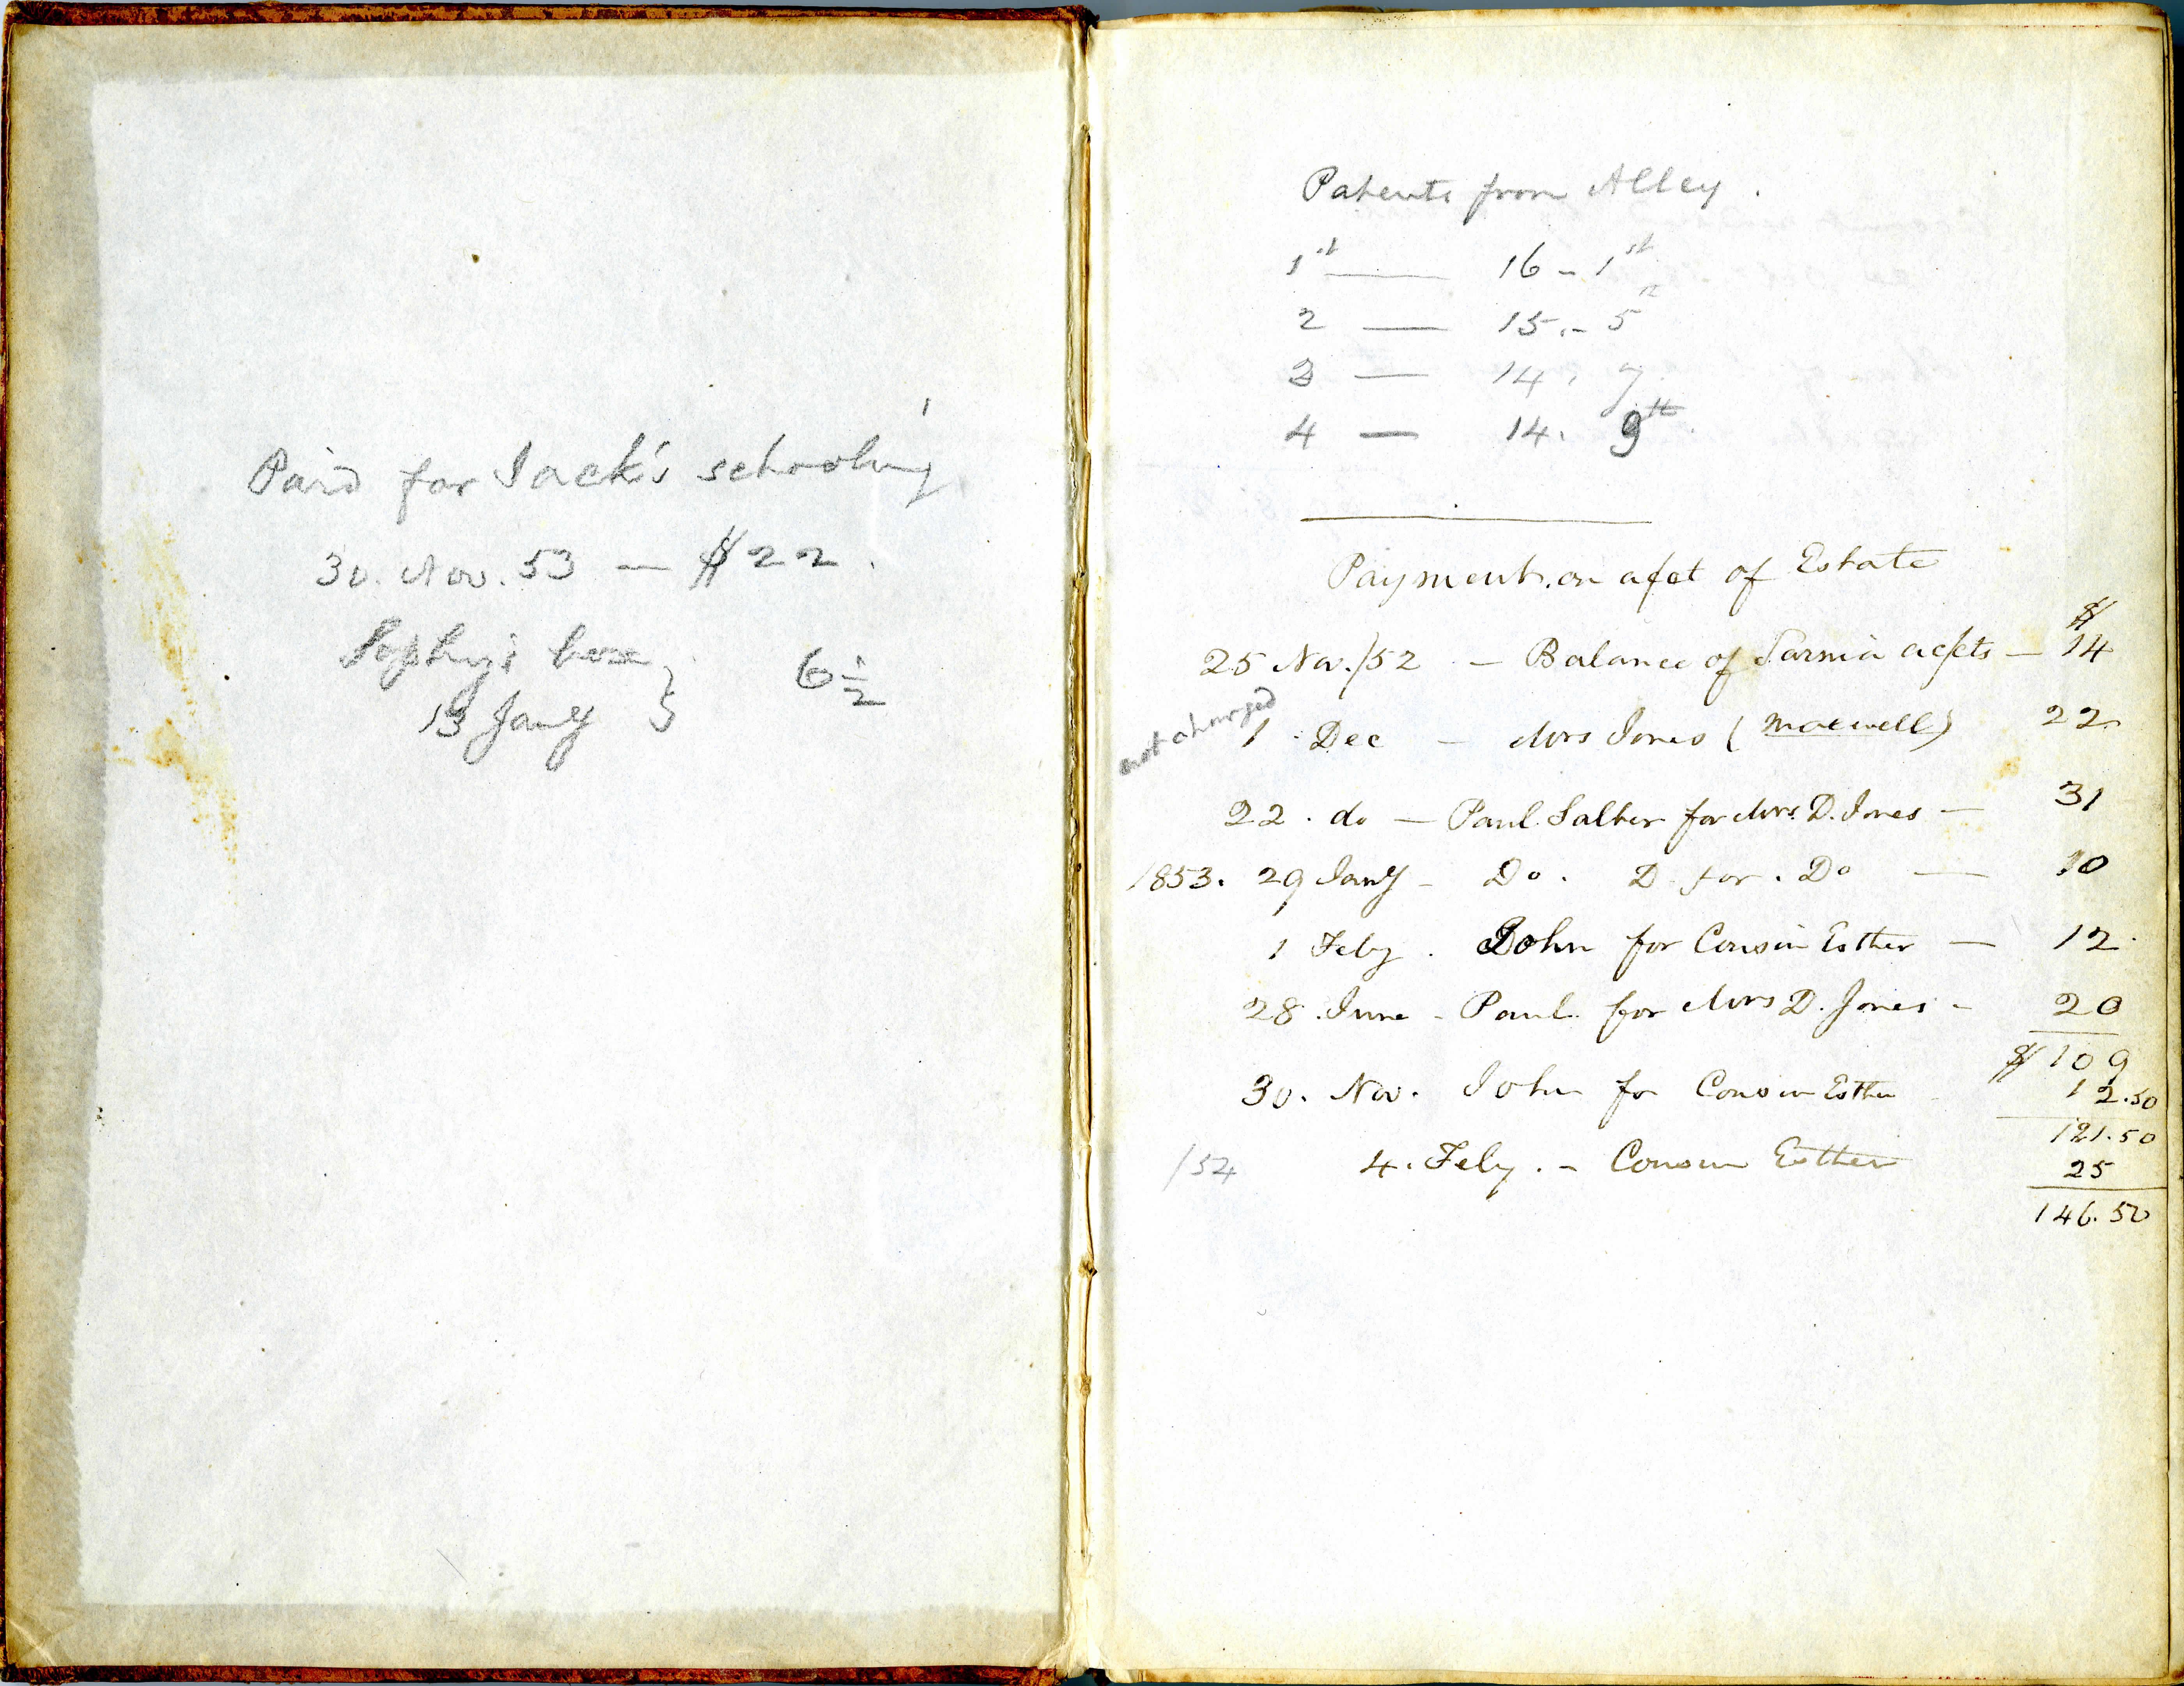 Paid for Jack's schooling
30. Nov. 53 — $22.
Sophy's boxe } 6 1/2
13 Jany
Patents from Alley.
1st — 16 - 1st
2 — 15. - 5th
3 — 14. 7
4 — 14. 9th
Payments on a/ct of Estate
$
25 Nov./52 — Balance of Sarnia ac/cts — 14
not charged
1 Dec — Mrs Jones (Maxwell) 22
22. do — Paul Salter for Mrs. D. Jones — 31
1853. 29 Jany - Do. D for. Do — 10
1 Feby. John for Cousin Esther — 12.
28. June - Paul for Mrs D. Jones - 20
$109
30. Nov. John for Cousin Esther 12.50
121.50
/54 4. Feby. - Cousin Esther 25
146.50